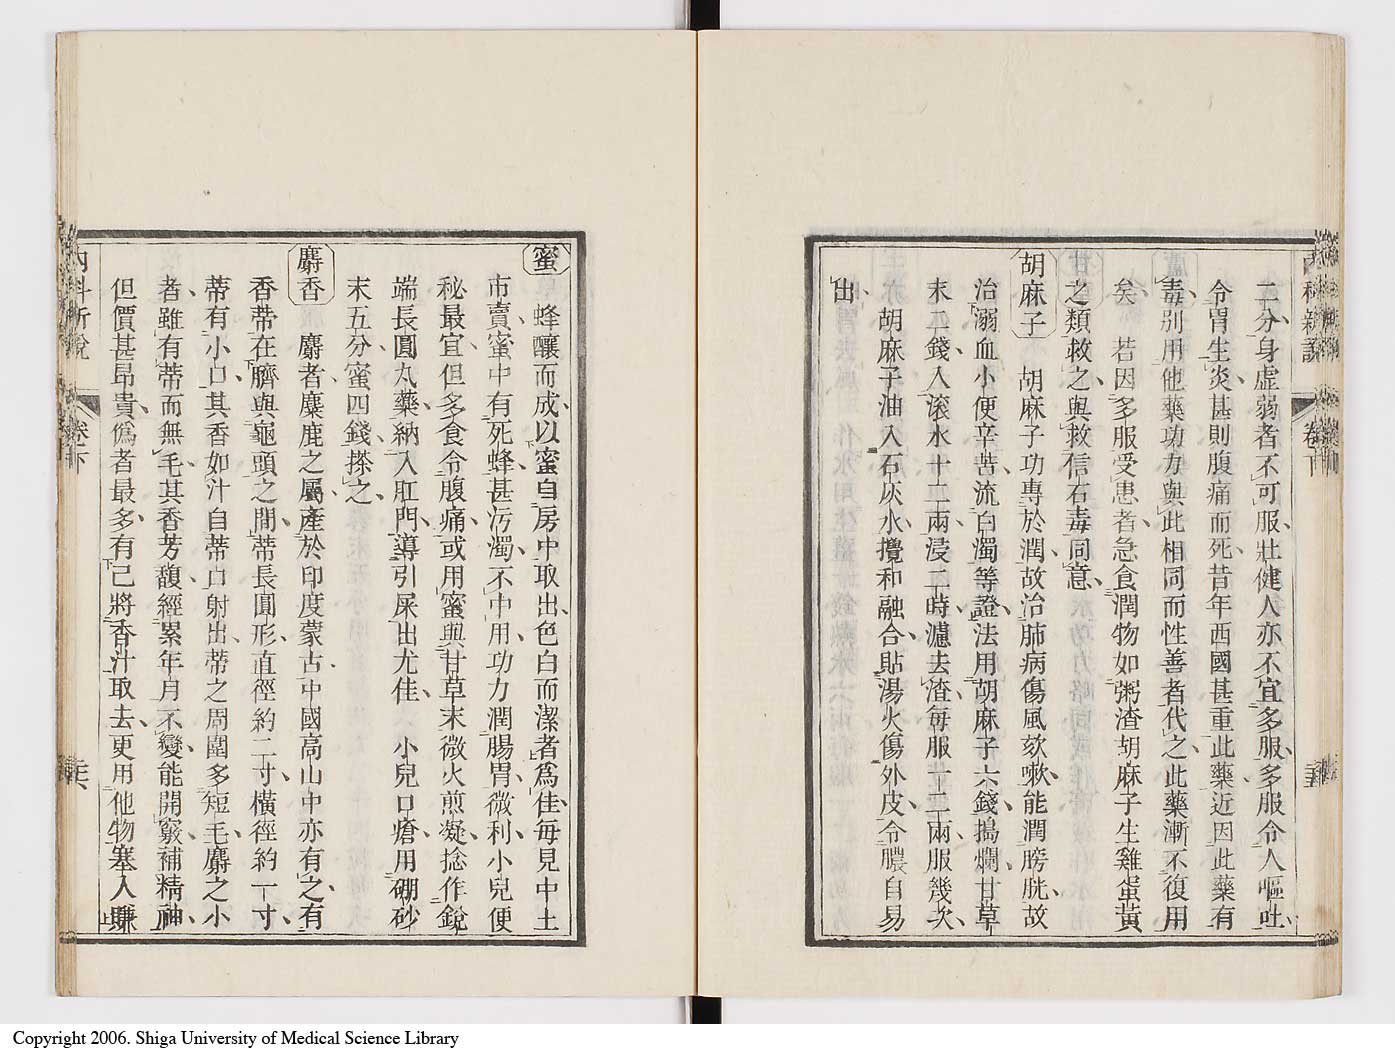 內科新說 卷下
二分身虛弱者不可服壯健人亦不宜多服多服令人嘔吐
令胃生炎甚則腹痛而死昔年西國甚重此藥近因此藥有
毒別用他藥功力與此相同而性善者代之此藥漸不復用
矣 若因多服受患者急食潤物如粥渣胡麻子生雞蛋黃
之類救之與救信石毒同意
胡麻子 胡麻子功專於潤故治肺病傷風欬嗽能潤膀胱故
治溺血小便辛苦流白濁等證法用胡麻子六錢搗爛甘草
末二錢入滾水十二兩浸二時濾去渣每服十二兩服幾次
胡麻子油入石灰水攪和融合貼湯火傷外皮令膿自易
出
蜜 蜂釀而成以蜜自房中取出色白而潔者為佳每見中土
市賣蜜中有死蜂甚污濁不中用功力潤腸胃微利小兒便
秘最宜但多食令腹痛或用蜜與甘草末微火煎凝捻作銳
端長圓丸藥納入肛門導引屎出尤佳 小兒口瘡用硼砂
末五分蜜四錢搽之
麝香 麝者麋鹿之屬產於印度蒙古中國高山中亦有之有
香蒂在臍與龜頭之間蒂長圓形直徑約二寸橫徑約一寸
蒂有小口其香如汁自蒂口射出蒂之周圍多短毛麝之小
者雖有蒂而無毛其香芳馥經累年月不變能開竅補精神
但價甚昂貴僞者最多有已將香汁取去更用他物塞入賺
內科新說 卷下